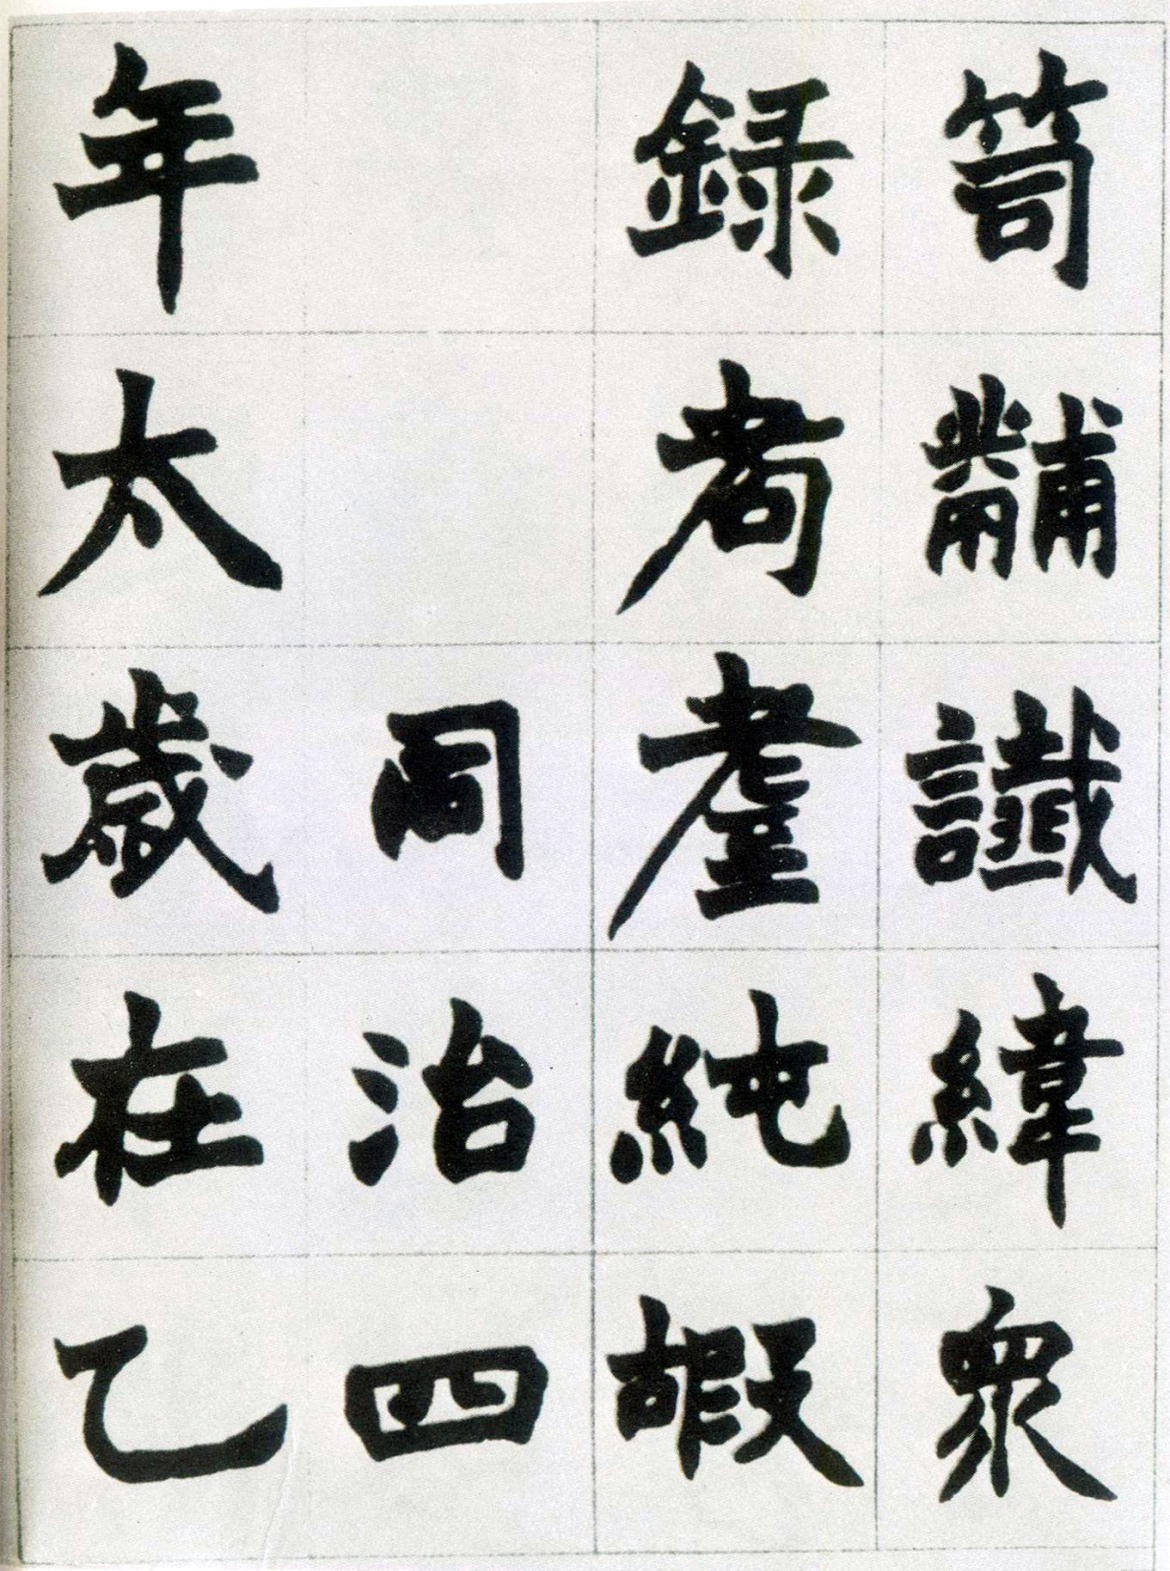 笥黼讖緯衆
録耇耋純嘏
同治四
年太歲在乙